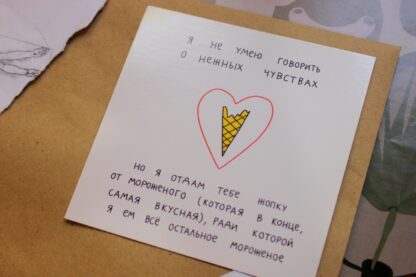 Я НЕ УМЕЮ ГОВОРИТЬ
О НЕЖНЫХ ЧУВСТВАХ
НО Я ОТДАМ ТЕБЕ ЖОПКУ
ОТ МОРОЖЕНОГО (КОТОРАЯ В КОНЦЕ,
САМАЯ ВКУСНАЯ), РАДИ КОТОРОЙ
Я ЕМ ВСЁ ОСТАЛЬНОЕ МОРОЖЕНОЕ